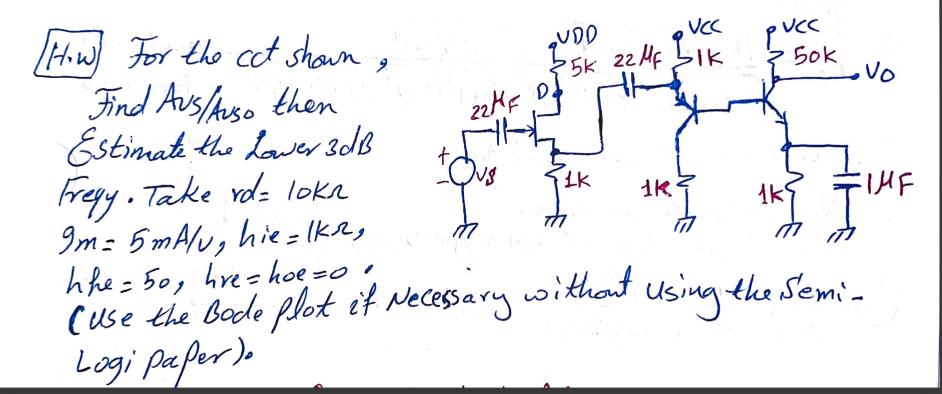 H.W For the cct shown,
Find Avs/Avso then
Estimate the Lower 3dB
Freqy. Take rd= 10kΩ
gm= 5mA/v, hie=1kΩ,
hfe=50, hre=hoe=0.
(use the Bode plot if Necessary without using the Semi-
Logi paper).
VDD
5k
22MF
VCC
1k
VCC
50k
Vo
22MF
D
+
-
Vs
1k
1k
1k
1MF